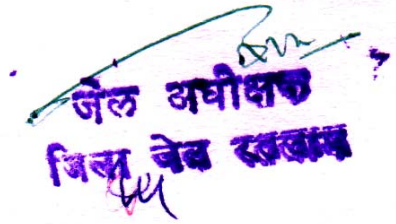 जेल अधीक्षक
जिला जेल रतलाम